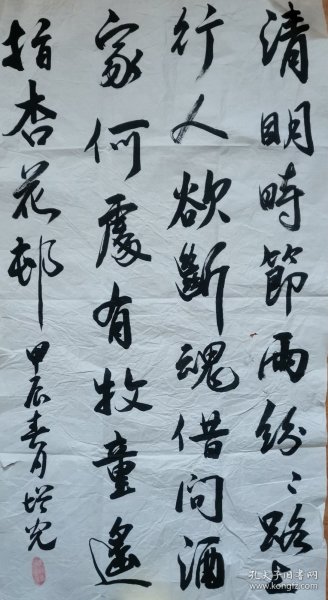 清明時節雨紛〻路上
行人欲斷魂借問酒
家何處有牧童遙
指杏花邨
甲辰春月
孔夫子旧书网